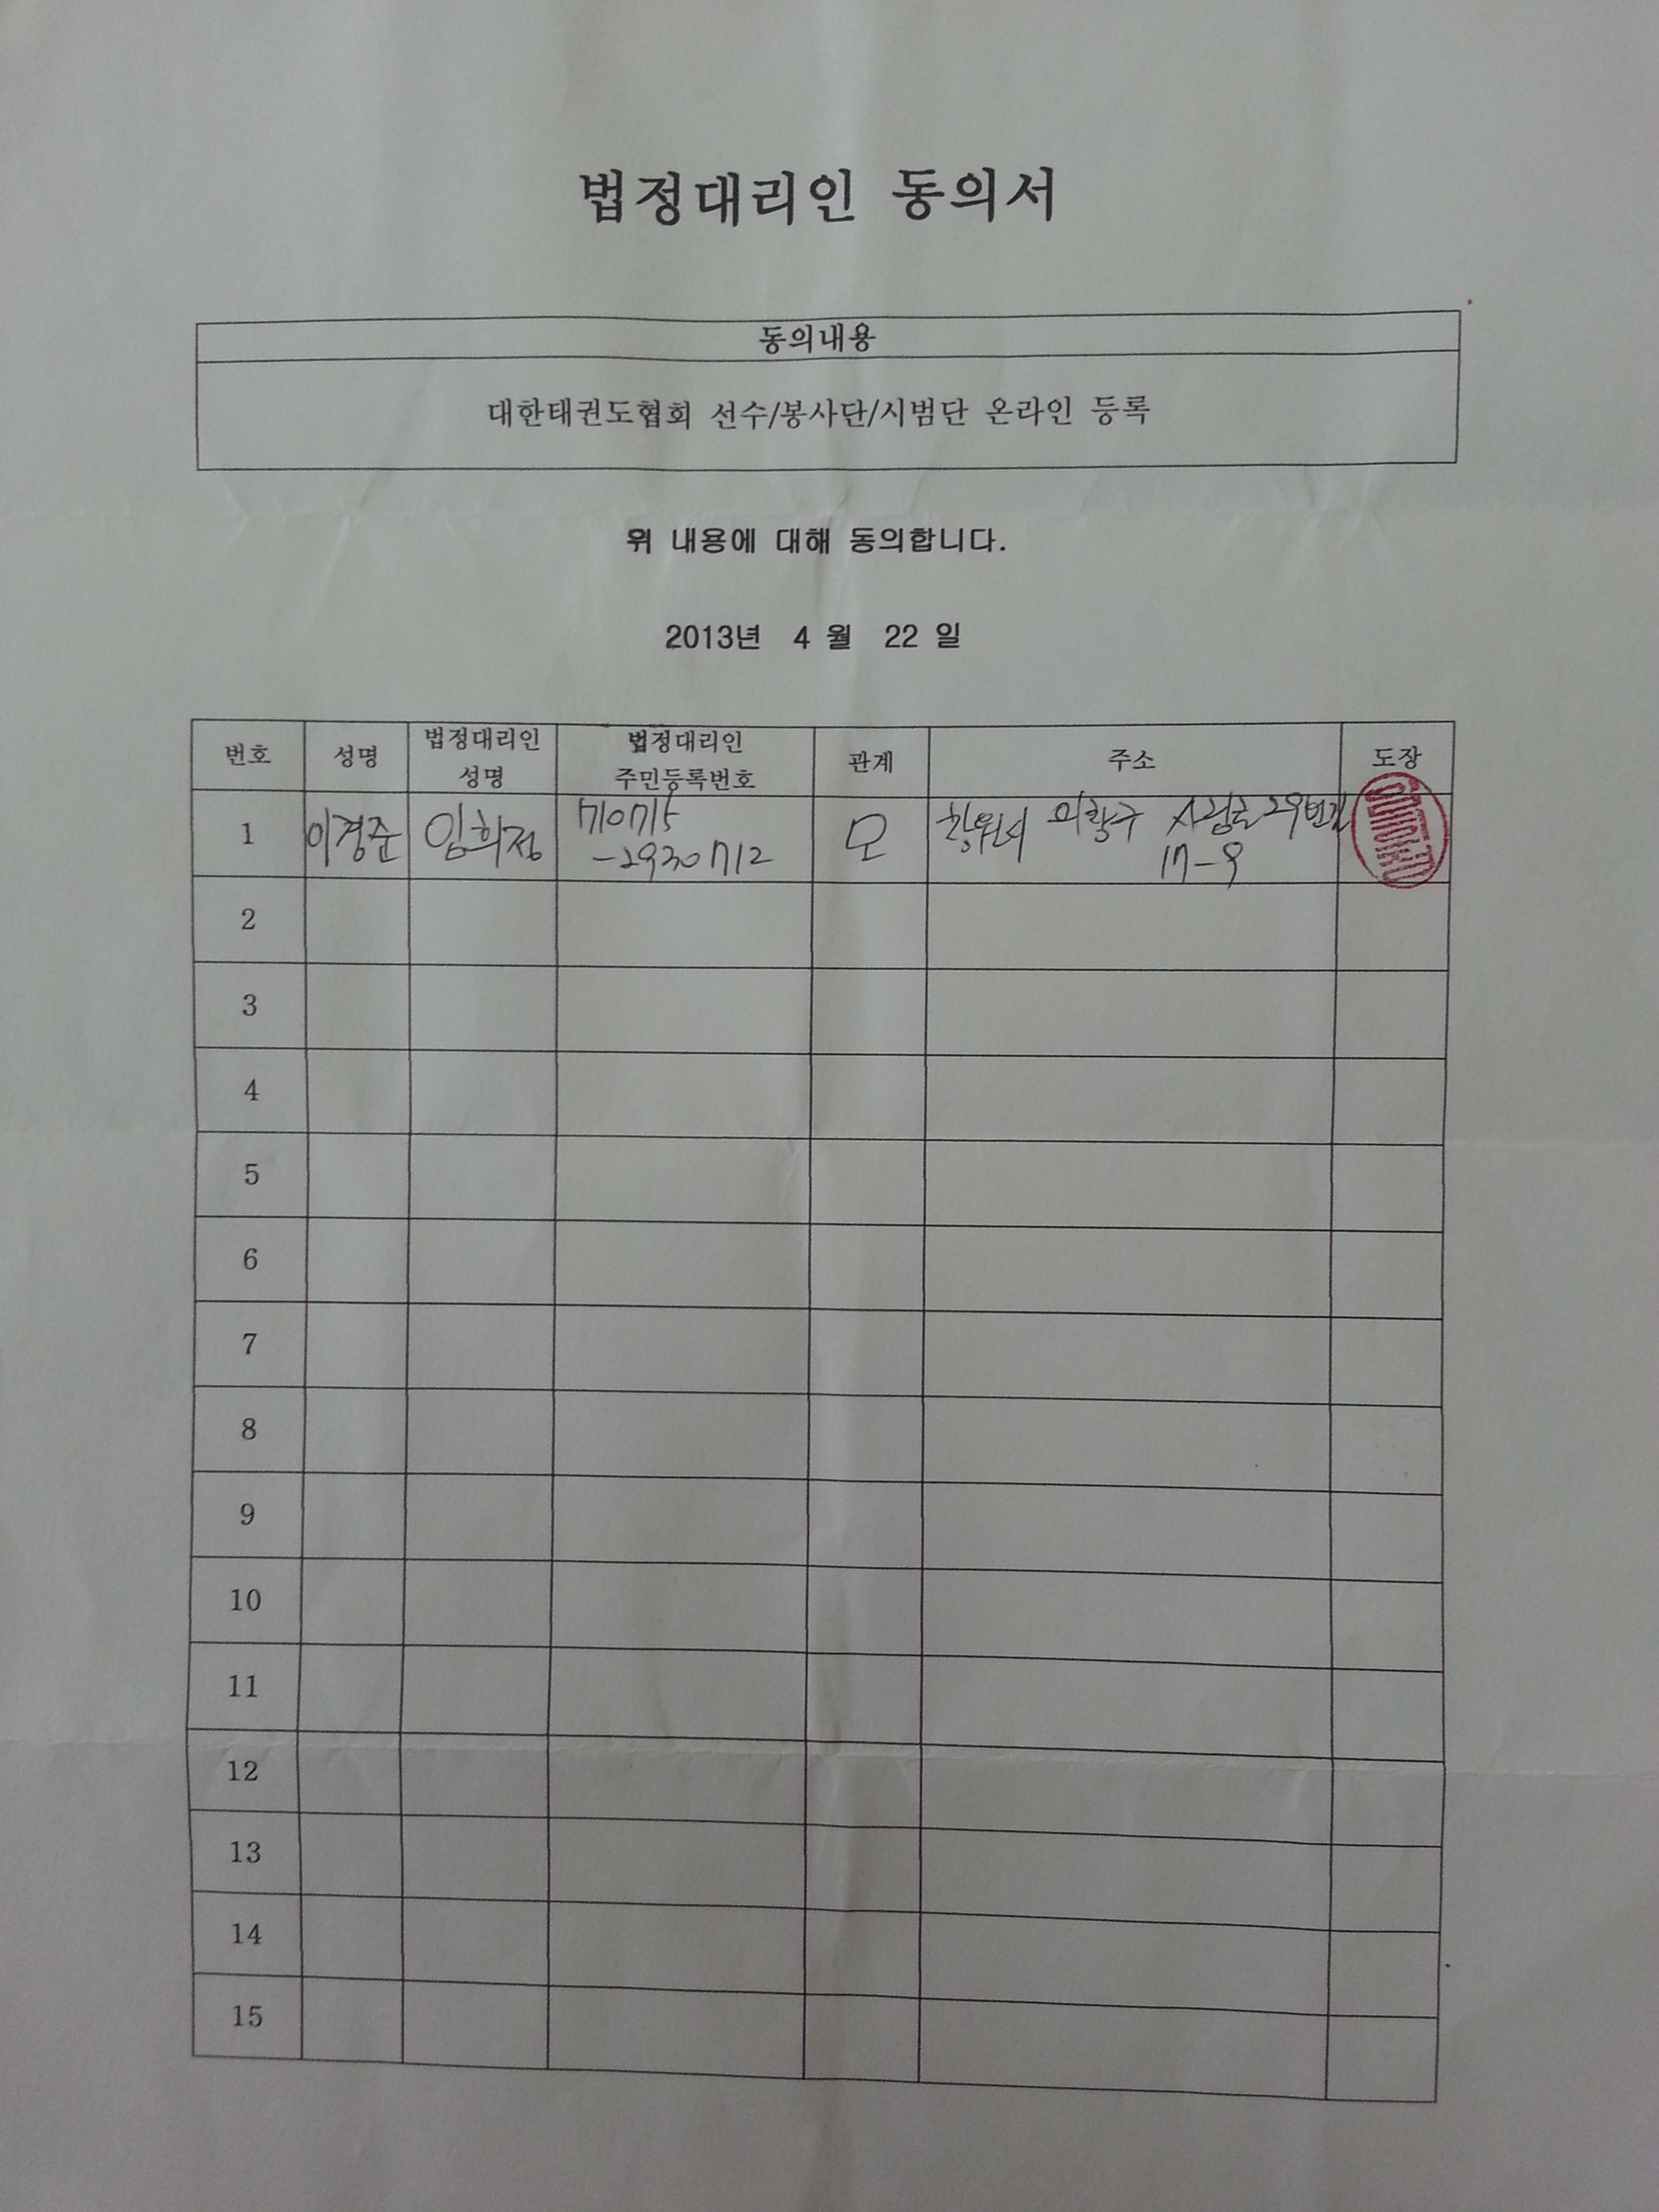 법정대리인 동의서
동의내용
대한태권도협회 선수/봉사단/시범단 온라인 등록
위 내용에 대해 동의합니다.
2013년 4 월 22 일
번호 성명 법정대리인 성명 법정대리인 주민등록번호 관계 주소 도장
1 이경준 임희정 710715 모 창원시 의창구 사림로29번길
-2930712 17-9
2
3
4
5
6
7
8
9
10
11
12
13
14
15